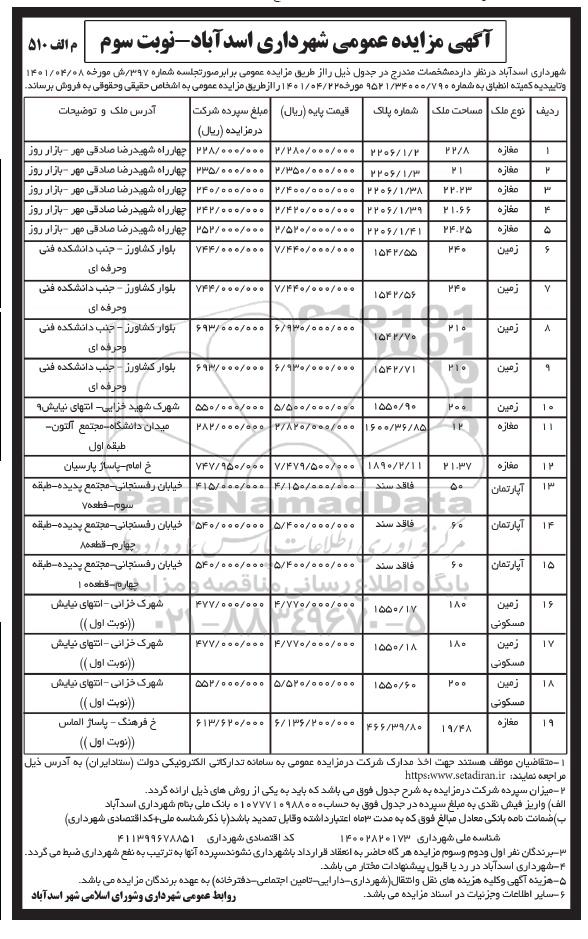 آگهی مزایده عمومی شهرداری اسدآباد-نوبت سوم
م الف ۵۱۰
شهرداری اسدآباد درنظر داردمشخصات مندرج در جدول ذیل رااز طریق مزایده عمومی برابرصورتجلسه شماره ۳۹۷/ش مورخه ۱۴۰۱/۰۴/۰۸
وتاییدیه کمیته انطباق به شماره ۹۵۲۱/۳۴۰۰۰/۷۹۰ مورخه ۱۴۰۱/۰۴/۲۲رازطریق مزایده عمومی به اشخاص حقیقی وحقوقی به فروش برساند.
ردیف نوع ملک مساحت ملک شماره پلاک قیمت پایه (ریال) مبلغ سپرده شرکت درمزایده (ریال) آدرس ملک و توضیحات
۱ مغازه ۲۲/۸ ۲۲۰۶/۱/۲ ۲/۲۸۰/۰۰۰/۰۰۰ ۲۲۸/۰۰۰/۰۰۰ چهارراه شهیدرضا صادقی مهر -بازار روز
۲ مغازه ۲۱ ۲۲۰۶/۱/۳ ۲/۳۵۰/۰۰۰/۰۰۰ ۲۳۵/۰۰۰/۰۰۰ چهارراه شهیدرضا صادقی مهر -بازار روز
۳ مغازه ۲۲.۲۳ ۲۲۰۶/۱/۳۸ ۲/۴۰۰/۰۰۰/۰۰۰ ۲۴۰/۰۰۰/۰۰۰ چهارراه شهیدرضا صادقی مهر -بازار روز
۴ مغازه ۲۱.۶۶ ۲۲۰۶/۱/۳۹ ۲/۴۲۰/۰۰۰/۰۰۰ ۲۴۲/۰۰۰/۰۰۰ چهارراه شهیدرضا صادقی مهر -بازار روز
۵ مغازه ۲۴.۲۵ ۲۲۰۶/۱/۴۱ ۲/۵۲۰/۰۰۰/۰۰۰ ۲۵۲/۰۰۰/۰۰۰ چهارراه شهیدرضا صادقی مهر -بازار روز
۶ زمین ۲۴۰ ۱۵۴۲/۵۵ ۷/۴۴۰/۰۰۰/۰۰۰ ۷۴۴/۰۰۰/۰۰۰ بلوار کشاورز - جنب دانشکده فنی
وحرفه ای
۷ زمین ۲۴۰ ۱۵۴۲/۵۶ ۷/۴۴۰/۰۰۰/۰۰۰ ۷۴۴/۰۰۰/۰۰۰ بلوار کشاورز - جنب دانشکده فنی
وحرفه ای
۸ زمین ۲۱۰ ۱۵۴۲/۷۰ ۶/۹۳۰/۰۰۰/۰۰۰ ۶۹۳/۰۰۰/۰۰۰ بلوار کشاورز - جنب دانشکده فنی
وحرفه ای
۹ زمین ۲۱۰ ۱۵۴۲/۷۱ ۶/۹۳۰/۰۰۰/۰۰۰ ۶۹۳/۰۰۰/۰۰۰ بلوار کشاورز - جنب دانشکده فنی
وحرفه ای
۱۰ زمین ۲۰۰ ۱۵۵۰/۹۰ ۵/۵۰۰/۰۰۰/۰۰۰ ۵۵۰/۰۰۰/۰۰۰ شهرک شهید خزایی- انتهای نیایش۹
۱۱ مغازه ۱۲ ۱۶۰۰/۳۶/۸۵ ۲/۸۲۰/۰۰۰/۰۰۰ ۲۸۲/۰۰۰/۰۰۰ میدان دانشگاه-مجتمع آلتون-
طبقه اول
۱۲ مغازه ۲۱.۳۷ ۱۸۹۰/۲/۱۱ ۷/۴۷۹/۵۰۰/۰۰۰ ۷۴۷/۹۵۰/۰۰۰ خ امام-پاساژ پارسیان
۱۳ آپارتمان ۵۰ فاقد سند ۴/۱۵۰/۰۰۰/۰۰۰ ۴۱۵/۰۰۰/۰۰۰ خیابان رفسنجانی-مجتمع پدیده-طبقه
سوم-قطعه۷
۱۴ آپارتمان ۶۰ فاقد سند ۵/۴۰۰/۰۰۰/۰۰۰ ۵۴۰/۰۰۰/۰۰۰ خیابان رفسنجانی-مجتمع پدیده-طبقه
چهارم-قطعه۸
۱۵ آپارتمان ۶۰ فاقد سند ۵/۴۰۰/۰۰۰/۰۰۰ ۵۴۰/۰۰۰/۰۰۰ خیابان رفسنجانی-مجتمع پدیده-طبقه
چهارم-قطعه۱۰
۱۶ زمین مسکونی ۱۸۰ ۱۵۵۰/۱۷ ۴/۷۷۰/۰۰۰/۰۰۰ ۴۷۷/۰۰۰/۰۰۰ شهرک خزائی -انتهای نیایش
((نوبت اول ))
۱۷ زمین مسکونی ۱۸۰ ۱۵۵۰/۱۸ ۴/۷۷۰/۰۰۰/۰۰۰ ۴۷۷/۰۰۰/۰۰۰ شهرک خزائی -انتهای نیایش
((نوبت اول ))
۱۸ زمین مسکونی ۲۰۰ ۱۵۵۰/۶۰ ۵/۵۲۰/۰۰۰/۰۰۰ ۵۵۲/۰۰۰/۰۰۰ شهرک خزائی -انتهای نیایش
((نوبت اول ))
۱۹ مغازه ۱۹/۴۸ ۴۶۶/۳۹/۸۰ ۶/۱۳۶/۲۰۰/۰۰۰ ۶۱۳/۶۲۰/۰۰۰ خ فرهنگ - پاساژ الماس
((نوبت اول ))
ParsNamadData
مرکز فرآوری اطلاعات پارس نماد داده ها
پایگاه اطلاع رسانی مناقصه و مزایده
۰۲۱-۸۸۳۴۹۶۷۰-۵
۱-متقاضیان موظف هستند جهت اخذ مدارک شرکت درمزایده عمومی به سامانه تدارکاتی الکترونیکی دولت (ستادایران) به آدرس ذیل
مراجعه نمایند: https:www.setadiran.ir
۲-میزان سپرده شرکت درمزایده به شرح جدول فوق می باشد که باید به یکی از روش های ذیل ارائه گردد.
الف) واریز فیش نقدی به مبلغ سپرده در جدول فوق به حساب۰۱۰۷۷۷۱۰۹۸۸۰۰۰ بانک ملی بنام شهرداری اسدآباد
ب)ضمانت نامه بانکی معادل مبالغ فوق که به مدت ۳ماه اعتبارداشته وقابل تمدید باشد(با ذکرشناسه ملی+کداقتصادی شهرداری)
شناسه ملی شهرداری ۱۴۰۰۲۸۲۰۱۷۳ کد اقتصادی شهرداری ۴۱۱۳۹۹۶۷۸۸۵۱
۳-برندگان نفر اول ودوم وسوم مزایده هر گاه حاضر به انعقاد قرارداد باشهرداری نشوندسپرده آنها به ترتیب به نفع شهرداری ضبط می گردد.
۴-شهرداری اسدآباد در رد یا قبول پیشنهادات مختار می باشد.
۵-هزینه آگهی وکلیه هزینه های نقل وانتقال(شهرداری-دارایی-تامین اجتماعی-دفترخانه) به عهده برندگان مزایده می باشد.
۶-سایر اطلاعات وجزئیات در اسناد مزایده می باشد.
روابط عمومی شهرداری وشورای اسلامی شهر اسدآباد